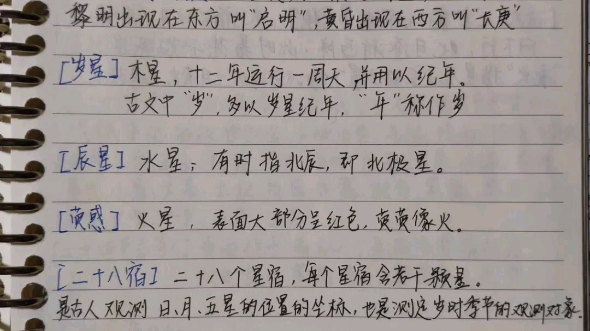 黎明出现在东方叫"启明",黄昏出现在西方叫"长庚"
[岁星] 木星,十二年运行一周天,并用以纪年。
古文中"岁",多以岁星纪年,"年"称作岁
[辰星] 水星;有时指北辰,即北极星。
[荧惑] 火星,表面大部分呈红色,荧荧像火。
[二十八宿] 二十八个星宿,每个星宿含若干颗星。
是古人观测日、月、五星的位置的坐标,也是测定岁时季节的观测对象.